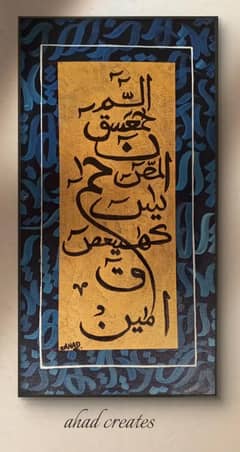 المر
حمعسق
ن
المص
حم
يس
كهيعص
ق
امين
AHAD
ahad creates